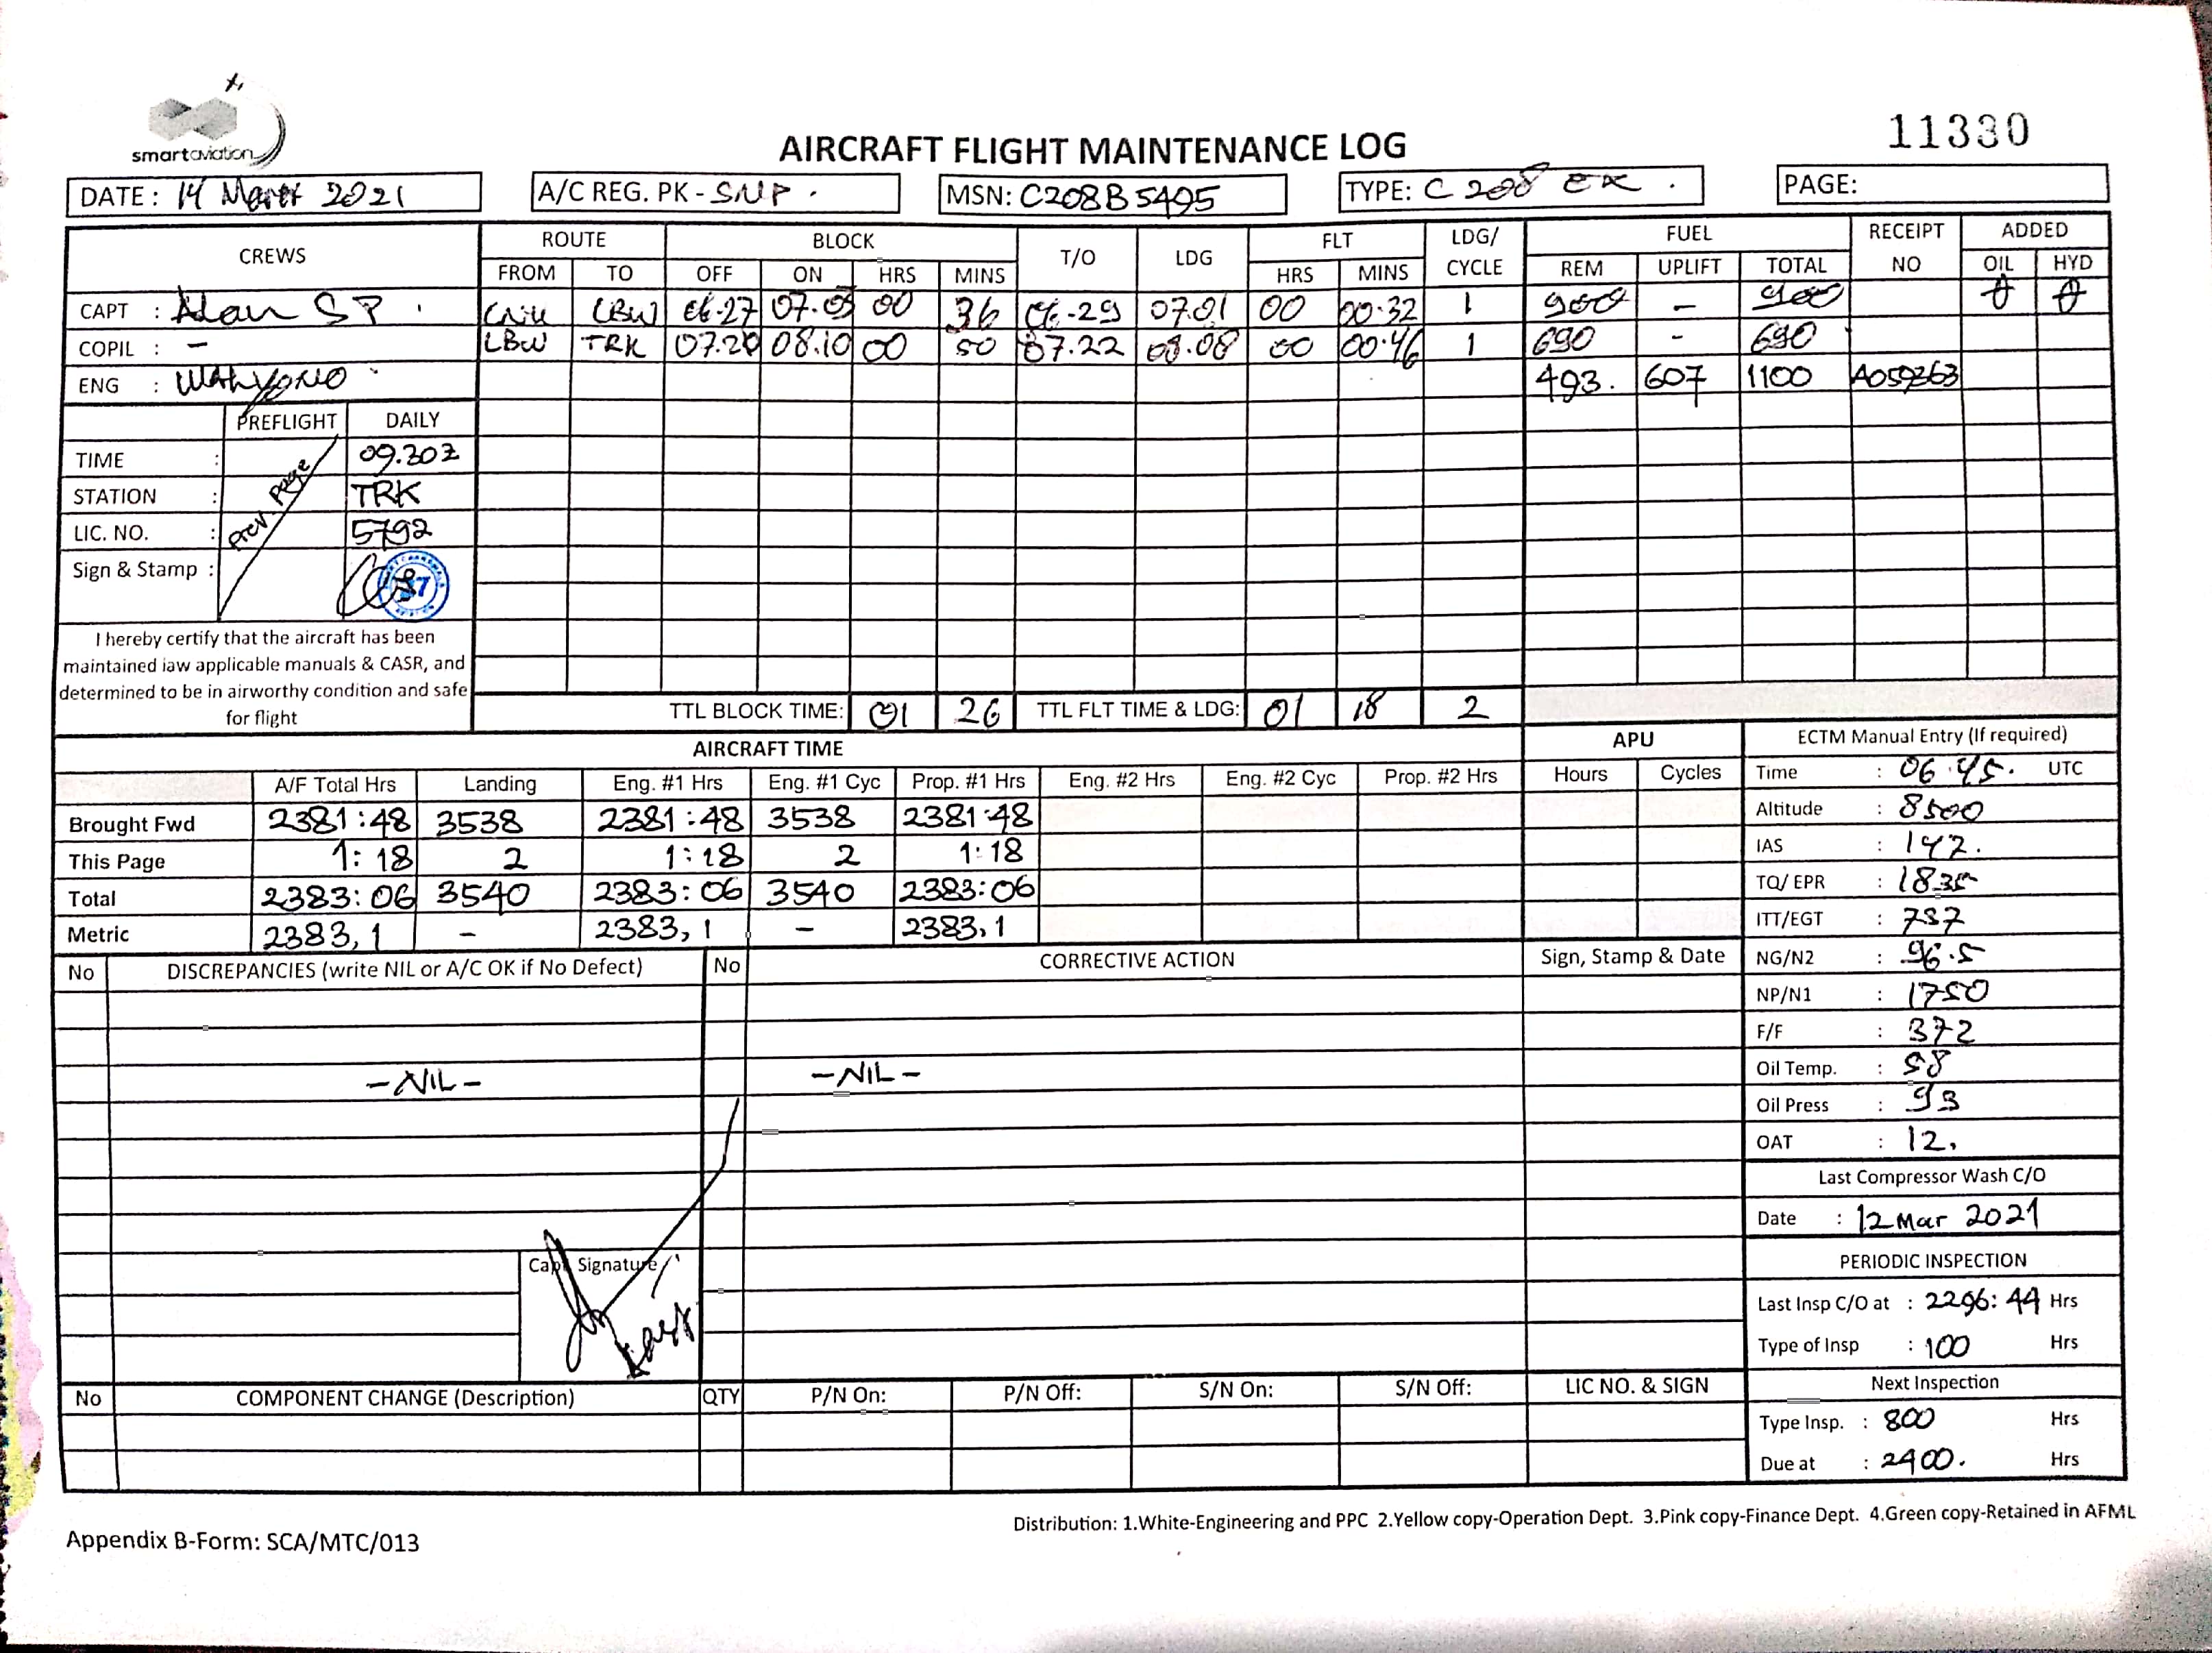 smartaviation
11330
AIRCRAFT FLIGHT MAINTENANCE LOG
DATE : 14 Maret 2021 A/C REG. PK - SNP . MSN: C208B5495 TYPE: C 208 EX . PAGE:
CREWS ROUTE BLOCK T/O LDG FLT LDG/ CYCLE FUEL RECEIPT NO ADDED
FROM TO OFF ON HRS MINS HRS MINS REM UPLIFT TOTAL OIL HYD
CAPT : Alan SP . LBW 06-27 07.03 00 36 06-29 07.01 00 00.32 1 900 - 900 0 0
COPIL : - LBW TRK 07.20 08.10 00 50 07.22 08.08 00 00:46 1 690 - 690
ENG : WAHYONO 493. 607 1100 A059263
PREFLIGHT DAILY
Prev. Page
TIME : 09.30Z
STATION : TRK
LIC. NO. : 5792
Sign & Stamp :
37
I hereby certify that the aircraft has been
maintained iaw applicable manuals & CASR, and
determined to be in airworthy condition and safe
for flight
TTL BLOCK TIME: 01 26 TTL FLT TIME & LDG: 01 18 2
AIRCRAFT TIME APU
A/F Total Hrs Landing Eng. #1 Hrs Eng. #1 Cyc Prop. #1 Hrs Eng. #2 Hrs Eng. #2 Cyc Prop. #2 Hrs Hours Cycles
Brought Fwd 2381:48 3538 2381:48 3538 2381:48
This Page 1:18 2 1:18 2 1:18
Total 2383:06 3540 2383:06 3540 2383:06
Metric 2383,1 - 2383,1 - 2383.1
ECTM Manual Entry (If required)
Time : 06.45. UTC
Altitude : 8500
IAS : 142.
TQ/ EPR : 1835
ITT/EGT : 737
NG/N2 : 96.5
NP/N1 : 1750
F/F : 372
Oil Temp. : 58
Oil Press : 93
OAT : 12.
Last Compressor Wash C/O
Date : 12 Mar 2021
PERIODIC INSPECTION
Last Insp C/O at : 2296:44 Hrs
Type of Insp : 100 Hrs
Next Inspection
Type Insp. : 800 Hrs
Due at : 2400. Hrs
No DISCREPANCIES (write NIL or A/C OK if No Defect) No CORRECTIVE ACTION Sign, Stamp & Date
-NIL- -NIL-
Capt Signature
No COMPONENT CHANGE (Description) QTY P/N On: P/N Off: S/N On: S/N Off: LIC NO. & SIGN
Distribution: 1.White-Engineering and PPC 2.Yellow copy-Operation Dept. 3.Pink copy-Finance Dept. 4.Green copy-Retained in AFML
Appendix B-Form: SCA/MTC/013